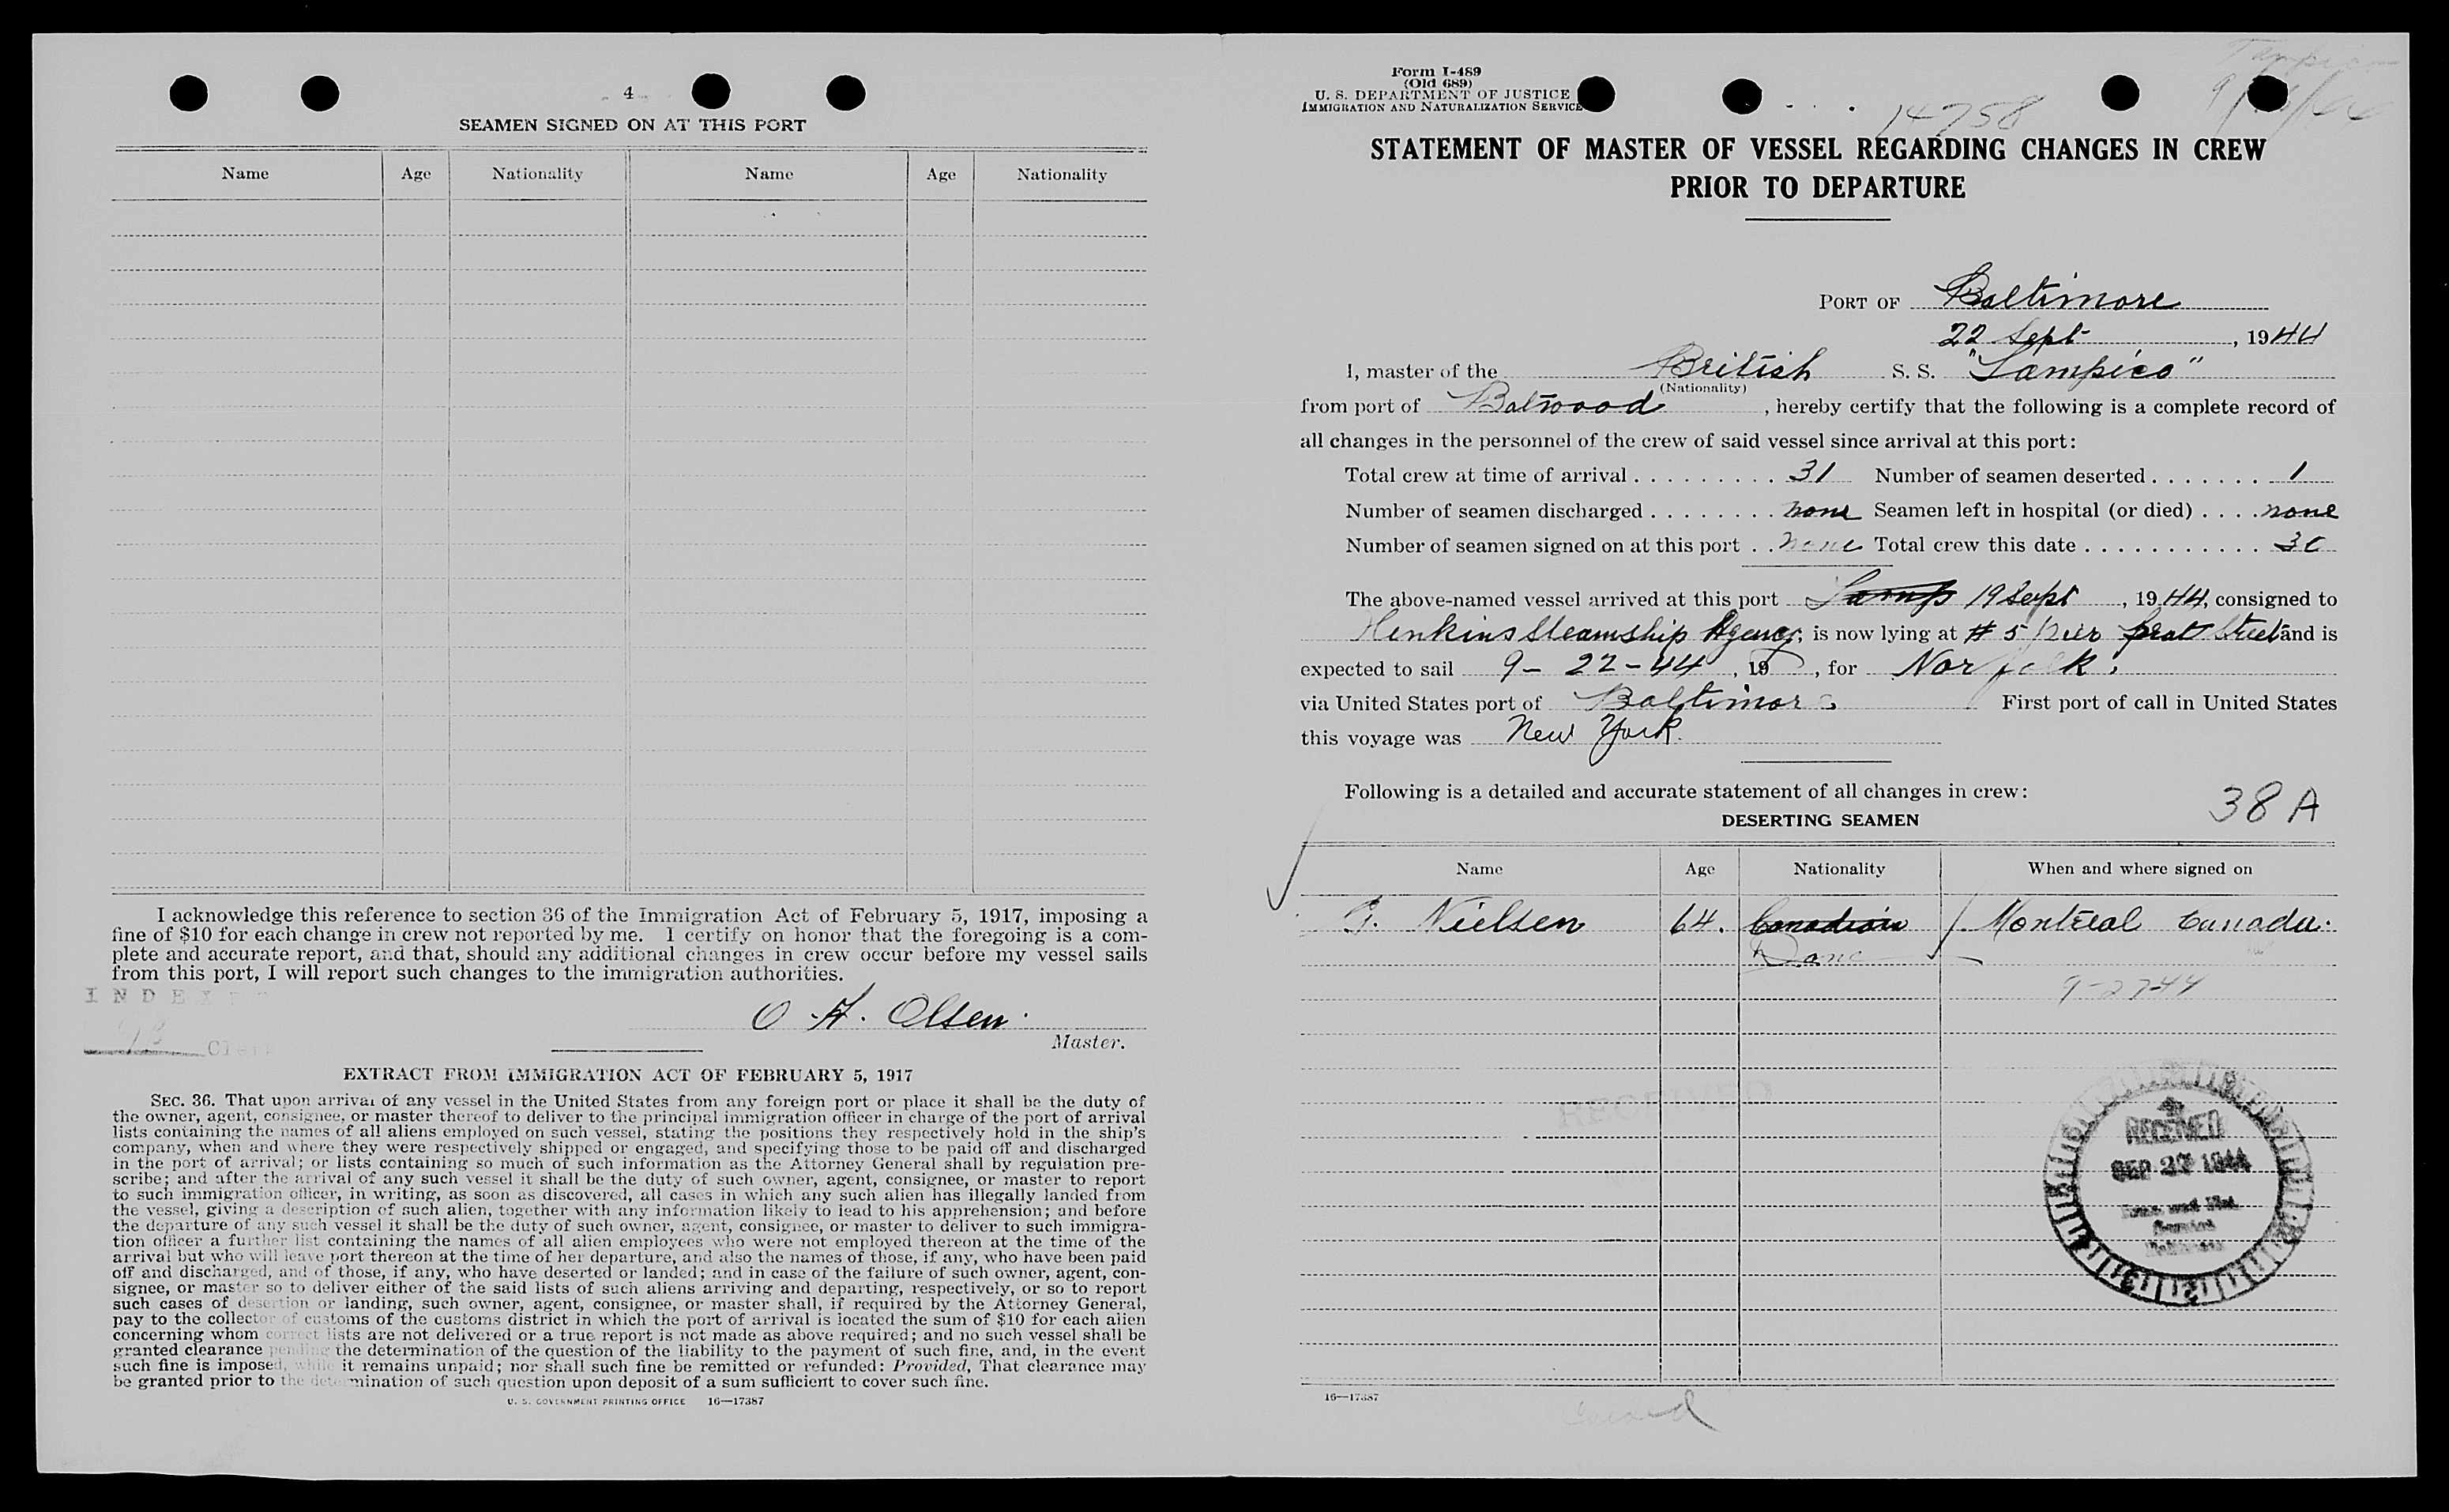 4
SEAMEN SIGNED ON AT THIS PORT
Name Age Nationality Name Age Nationality
I acknowledge this reference to section 36 of the Immigration Act of February 5, 1917, imposing a
fine of $10 for each change in crew not reported by me. I certify on honor that the foregoing is a com-
plete and accurate report, and that, should any additional changes in crew occur before my vessel sails
from this port, I will report such changes to the immigration authorities.
INDEXED
Clerk
O. H. Olsen.
Master.
EXTRACT FROM IMMIGRATION ACT OF FEBRUARY 5, 1917
SEC. 36. That upon arrival of any vessel in the United States from any foreign port or place it shall be the duty of
the owner, agent, consignee, or master thereof to deliver to the principal immigration officer in charge of the port of arrival
lists containing the names of all aliens employed on such vessel, stating the positions they respectively hold in the ship's
company, when and where they were respectively shipped or engaged, and specifying those to be paid off and discharged
in the port of arrival; or lists containing so much of such information as the Attorney General shall by regulation pre-
scribe; and after the arrival of any such vessel it shall be the duty of such owner, agent, consignee, or master to report
to such immigration officer, in writing, as soon as discovered, all cases in which any such alien has illegally landed from
the vessel, giving a description of such alien, together with any information likely to lead to his apprehension; and before
the departure of any such vessel it shall be the duty of such owner, agent, consignee, or master to deliver to such immigra-
tion officer a further list containing the names of all alien employees who were not employed thereon at the time of the
arrival but who will leave port thereon at the time of her departure, and also the names of those, if any, who have been paid
off and discharged, and of those, if any, who have deserted or landed; and in case of the failure of such owner, agent, con-
signee, or master so to deliver either of the said lists of such aliens arriving and departing, respectively, or so to report
such cases of desertion or landing, such owner, agent, consignee, or master shall, if required by the Attorney General,
pay to the collector of customs of the customs district in which the port of arrival is located the sum of $10 for each alien
concerning whom correct lists are not delivered or a true report is not made as above required; and no such vessel shall be
granted clearance pending the determination of the question of the liability to the payment of such fine, and, in the event
such fine is imposed, while it remains unpaid; nor shall such fine be remitted or refunded: Provided, That clearance may
be granted prior to the determination of such question upon deposit of a sum sufficient to cover such fine.
U. S. GOVERNMENT PRINTING OFFICE 16—17387
Form I-489
(Old 689)
U. S. DEPARTMENT OF JUSTICE
IMMIGRATION AND NATURALIZATION SERVICE
14758
STATEMENT OF MASTER OF VESSEL REGARDING CHANGES IN CREW
PRIOR TO DEPARTURE
PORT OF Baltimore
22 Sept , 1944
I, master of the British S. S. "Lampico"
(Nationality)
from port of Botwood , hereby certify that the following is a complete record of
all changes in the personnel of the crew of said vessel since arrival at this port:
Total crew at time of arrival . . . . . . . . . 31 Number of seamen deserted . . . . . . . 1
Number of seamen discharged . . . . . . . . none Seamen left in hospital (or died) . . . . none
Number of seamen signed on at this port . . none Total crew this date . . . . . . . . . . . 30
The above-named vessel arrived at this port 19 Sept , 1944, consigned to
Henkins Steamship Agency; is now lying at # 5 Pier Prat Street and is
expected to sail 9 - 22 - 44 , 19 , for Norfolk.
via United States port of Baltimore First port of call in United States
this voyage was New York.
Following is a detailed and accurate statement of all changes in crew:
38 A
DESERTING SEAMEN
Name Age Nationality When and where signed on
G. Nielsen 64. Canadian Montreal Canada.
Dane
9-27-44
RECEIVED
RECEIVED
SEP 23 1944
16—17387